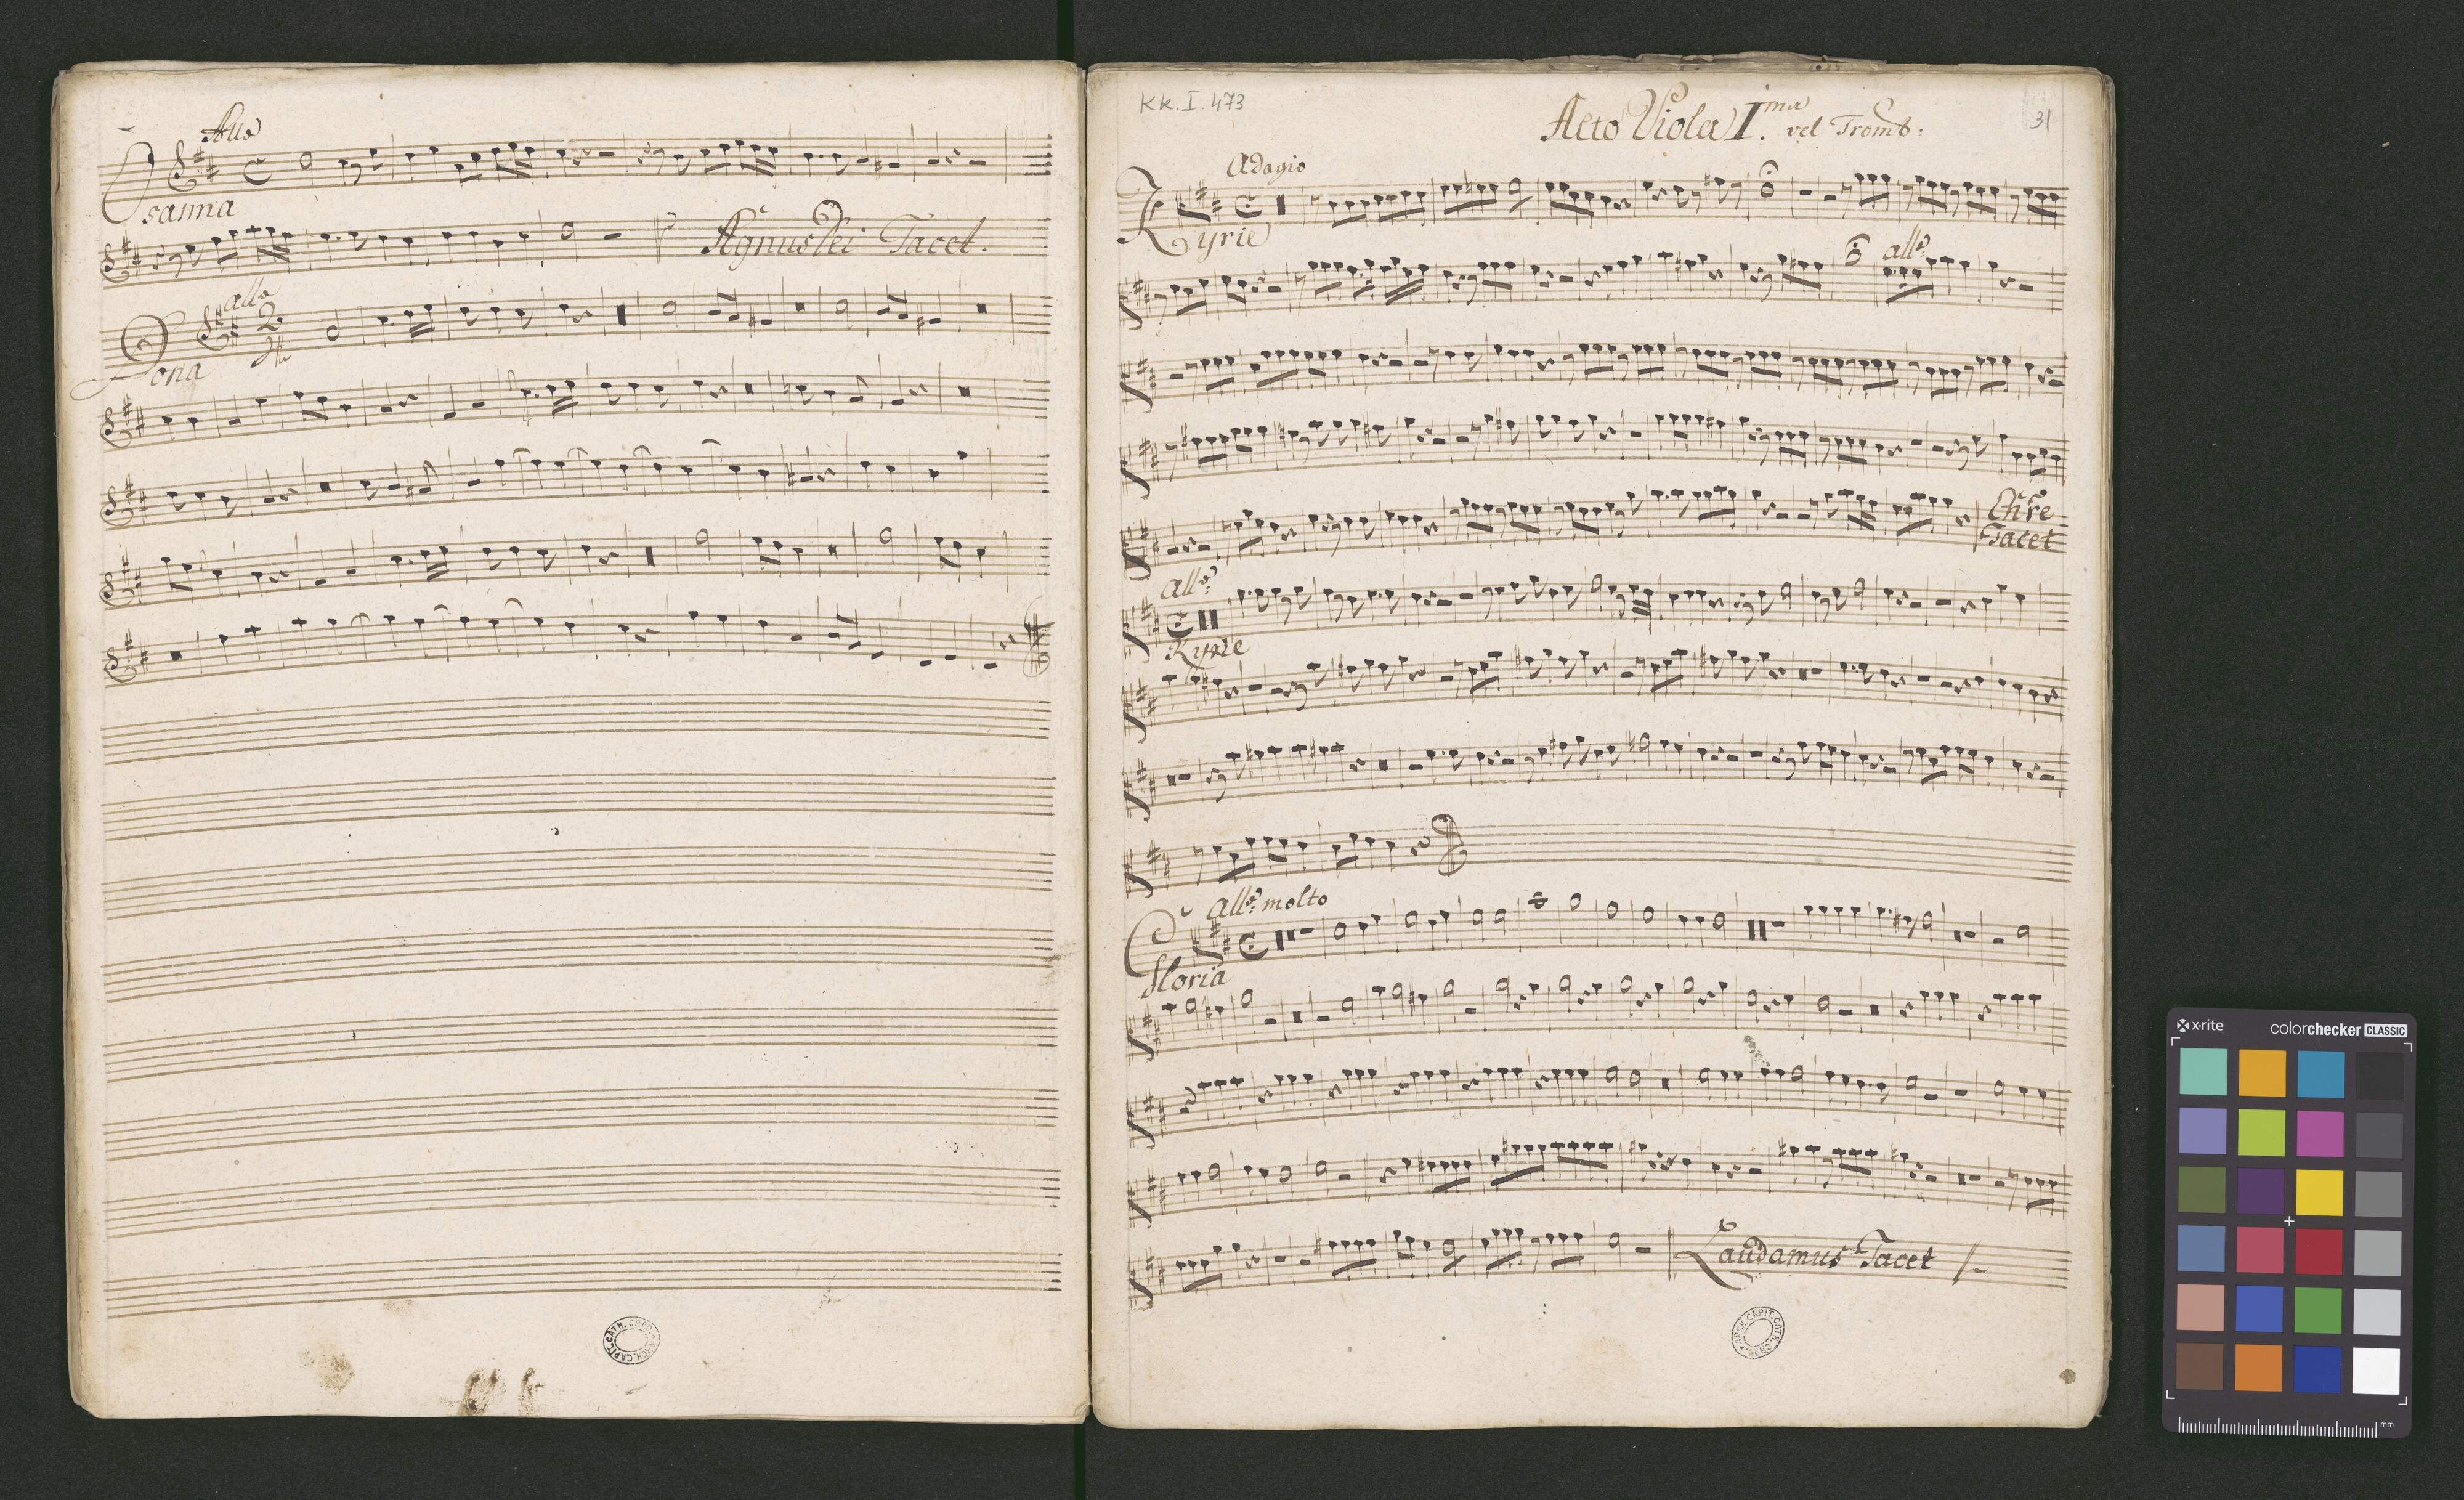 Allo
Osanna
Agnus Dei Tacet.
allo
2.
4
Dona
KK. I. 473
Alto Viola I.ma vel Tromb:
31
Adagio
Kyrie
allo:
Chre
Tacet
allo:
Kyrie
allo: molto
Gloria
Laudamus Tacet
x-rite
colorchecker CLASSIC
mm